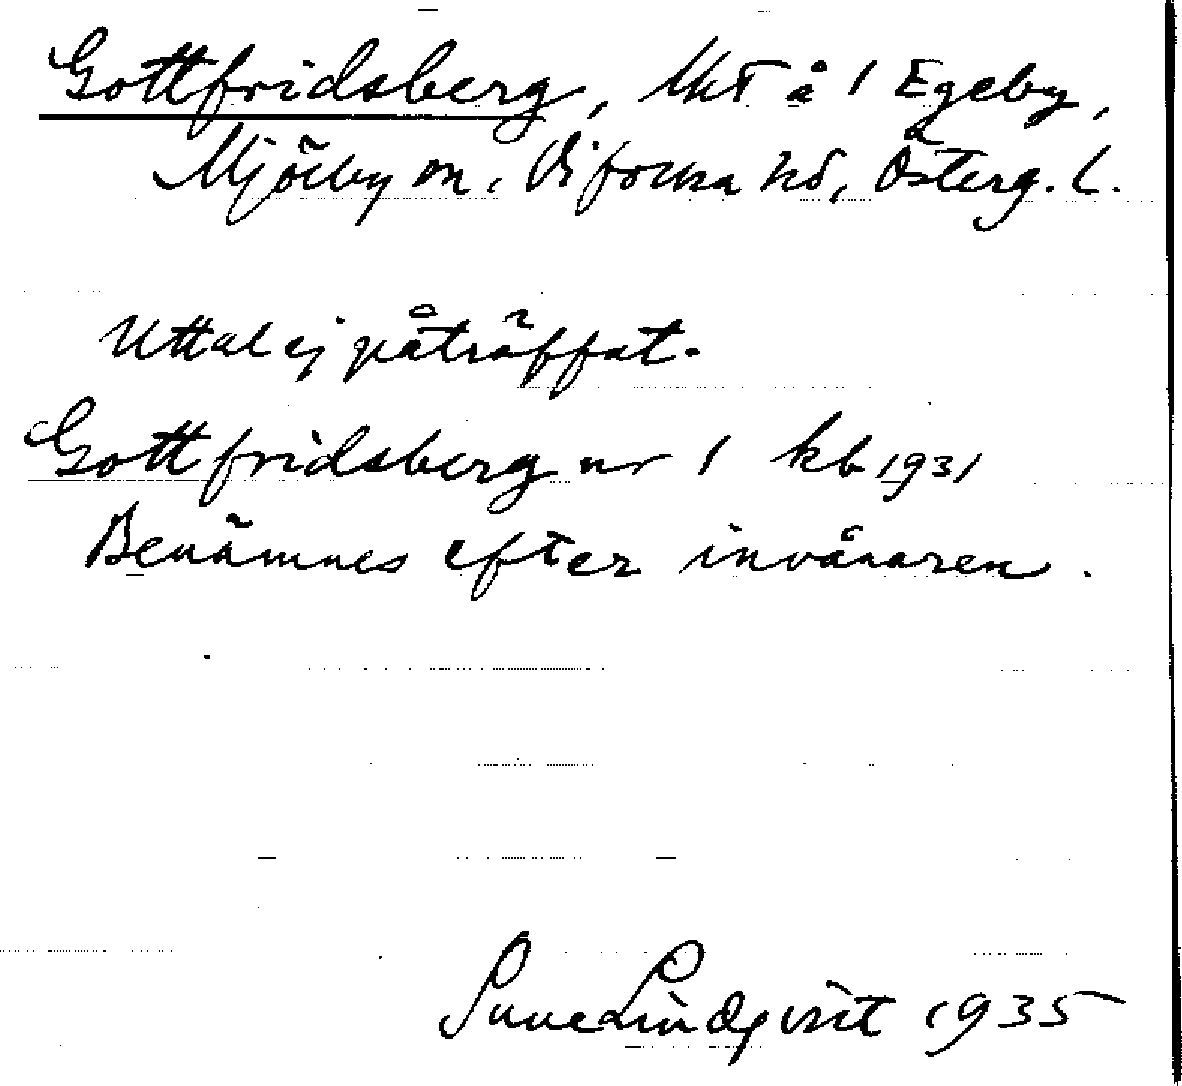 Gottfridsberg, lht å 1 Egeby,
Mjölby sn, Vifolka hd, Österg. l.
Uttal ej påträffat.
Gottfridsberg nr 1 kb 1931
Benämnes efter invånaren.
Sune Lindqvist 1935